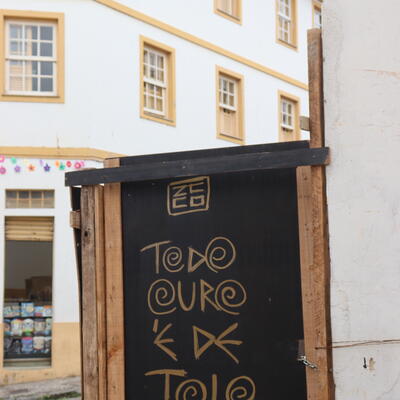 ZECO
TODO
OURO
É DE
TOLO